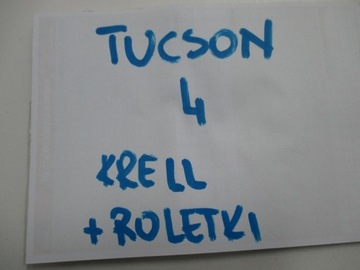 TUCSON
4
KRELL
+ROLETKI